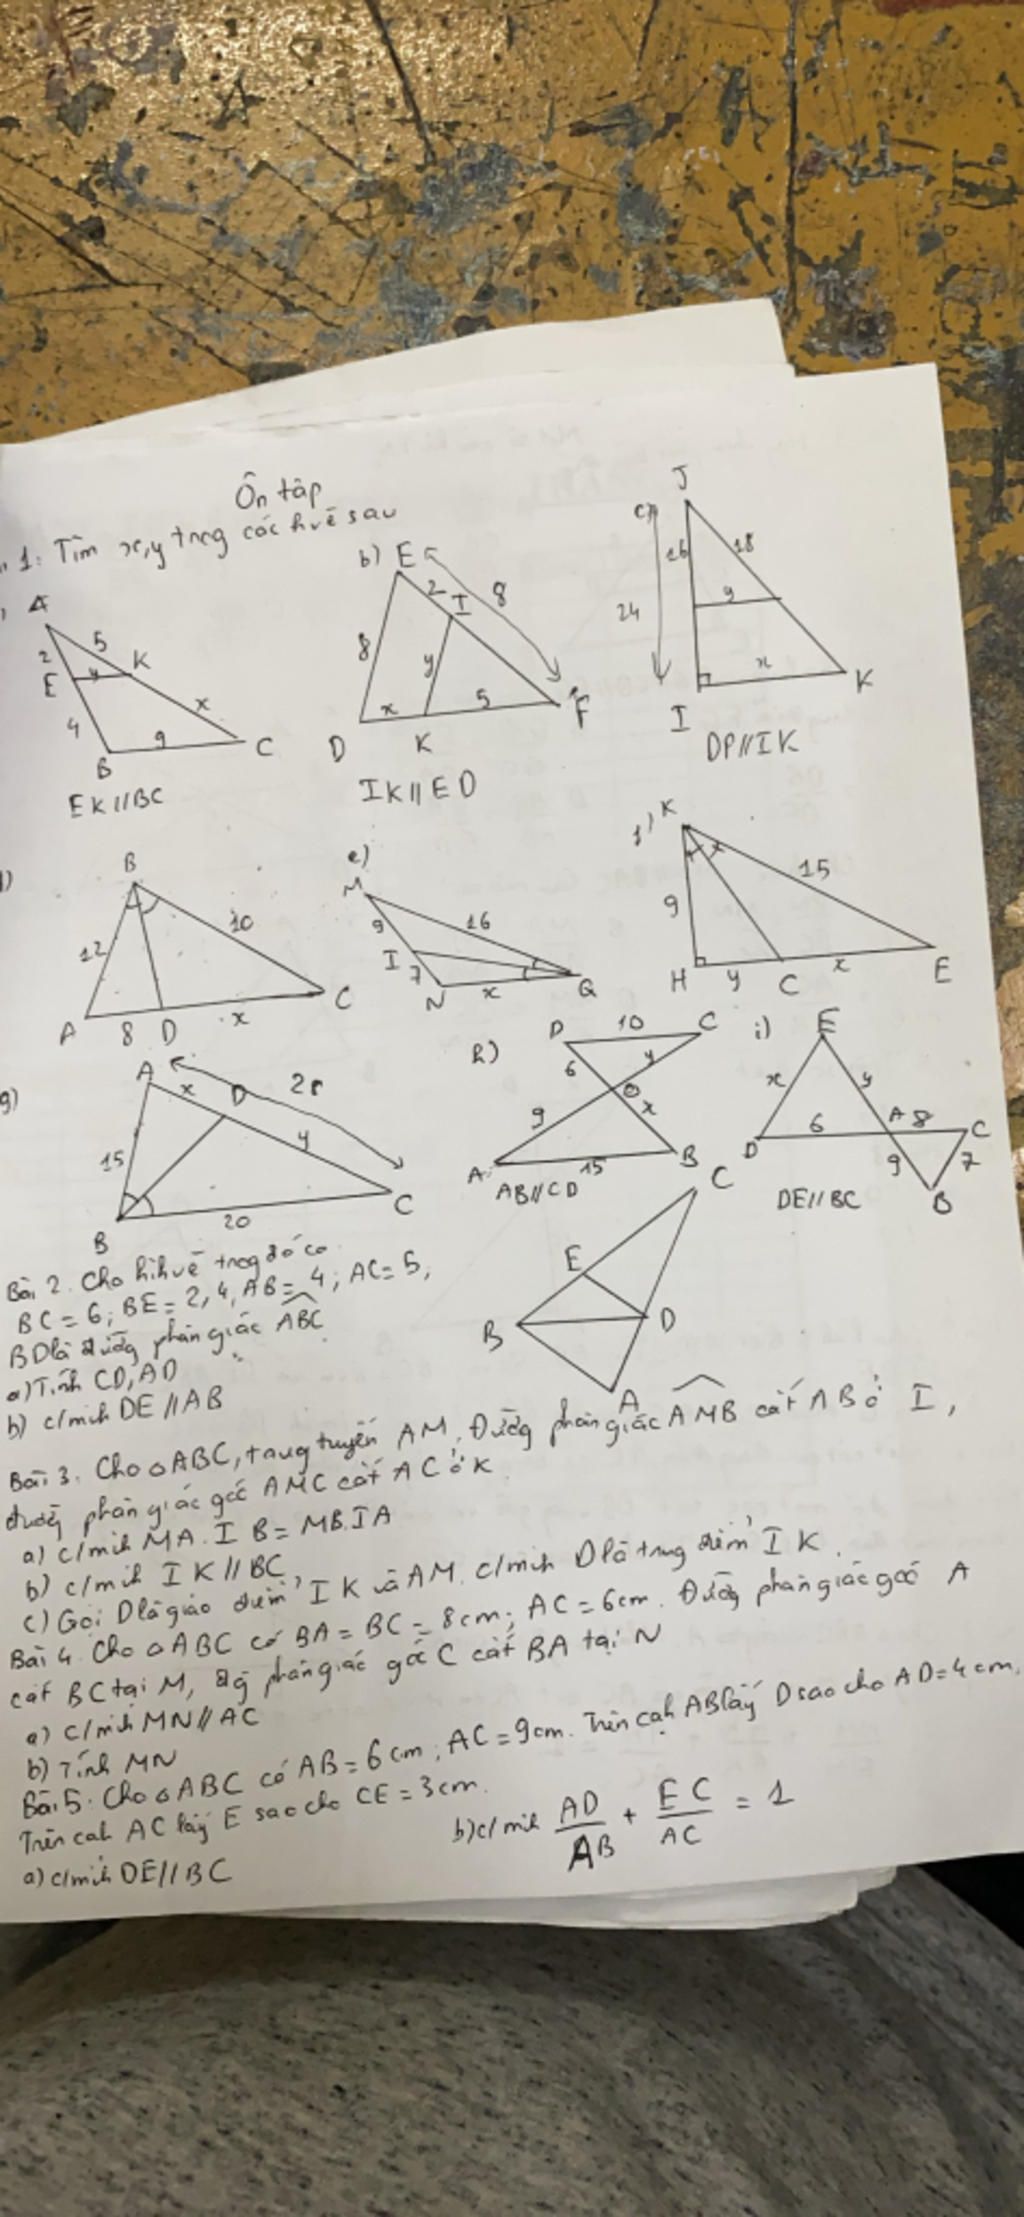 Ôn tập
1: Tìm x, y trog các hvẽ sau
A 5 K 2 E y 4 x B 9 C
EK//BC
b) E 2 I 8 8 y x 5 D K F
IK//ED
c) J 16 18 24 y x I K
DP//IK
B 12 10 A 8 D x C
e) M 9 16 I 7 N x Q
K 15 9 H y C x E
g) A x D y 15 B 20 C
h) D 10 C 6 y O 9 x A 15 B
AB//CD
i) E x y D 6 A 8 C 9 7 B
DE//BC
C E B D A
Bài 2. Cho hìhvẽ trog đó có
BC = 6; BE = 2,4, AB = 4; AC = 5,
BD là đườg phân giác ABC
a) Tíh CD, AD
b) c/mih DE // AB
Bài 3. Cho △ABC, trug tuyến AM. Đườg phân giác AMB cắt AB ở I,
đườg phân giác góc AMC cắt AC ở K
a) c/mih MA.IB = MB.IA
b) c/mih IK // BC
c) Gọi D là giao điểm IK và AM. c/mih D là trug điểm IK.
Bài 4. Cho △ABC có BA = BC = 8cm; AC = 6cm. Đườg phân giác góc A
cắt BC tại M, đg phân giác góc C cắt BA tại N
a) c/mih MN // AC
b) Tíh MN
Bài 5. Cho △ABC có AB = 6cm; AC = 9cm. Trên cạh AB lấy D sao cho AD = 4cm,
Trên cạh AC lấy E sao cho CE = 3cm.
a) c/mih DE // BC
b) c/mih AD/AB + EC/AC = 1